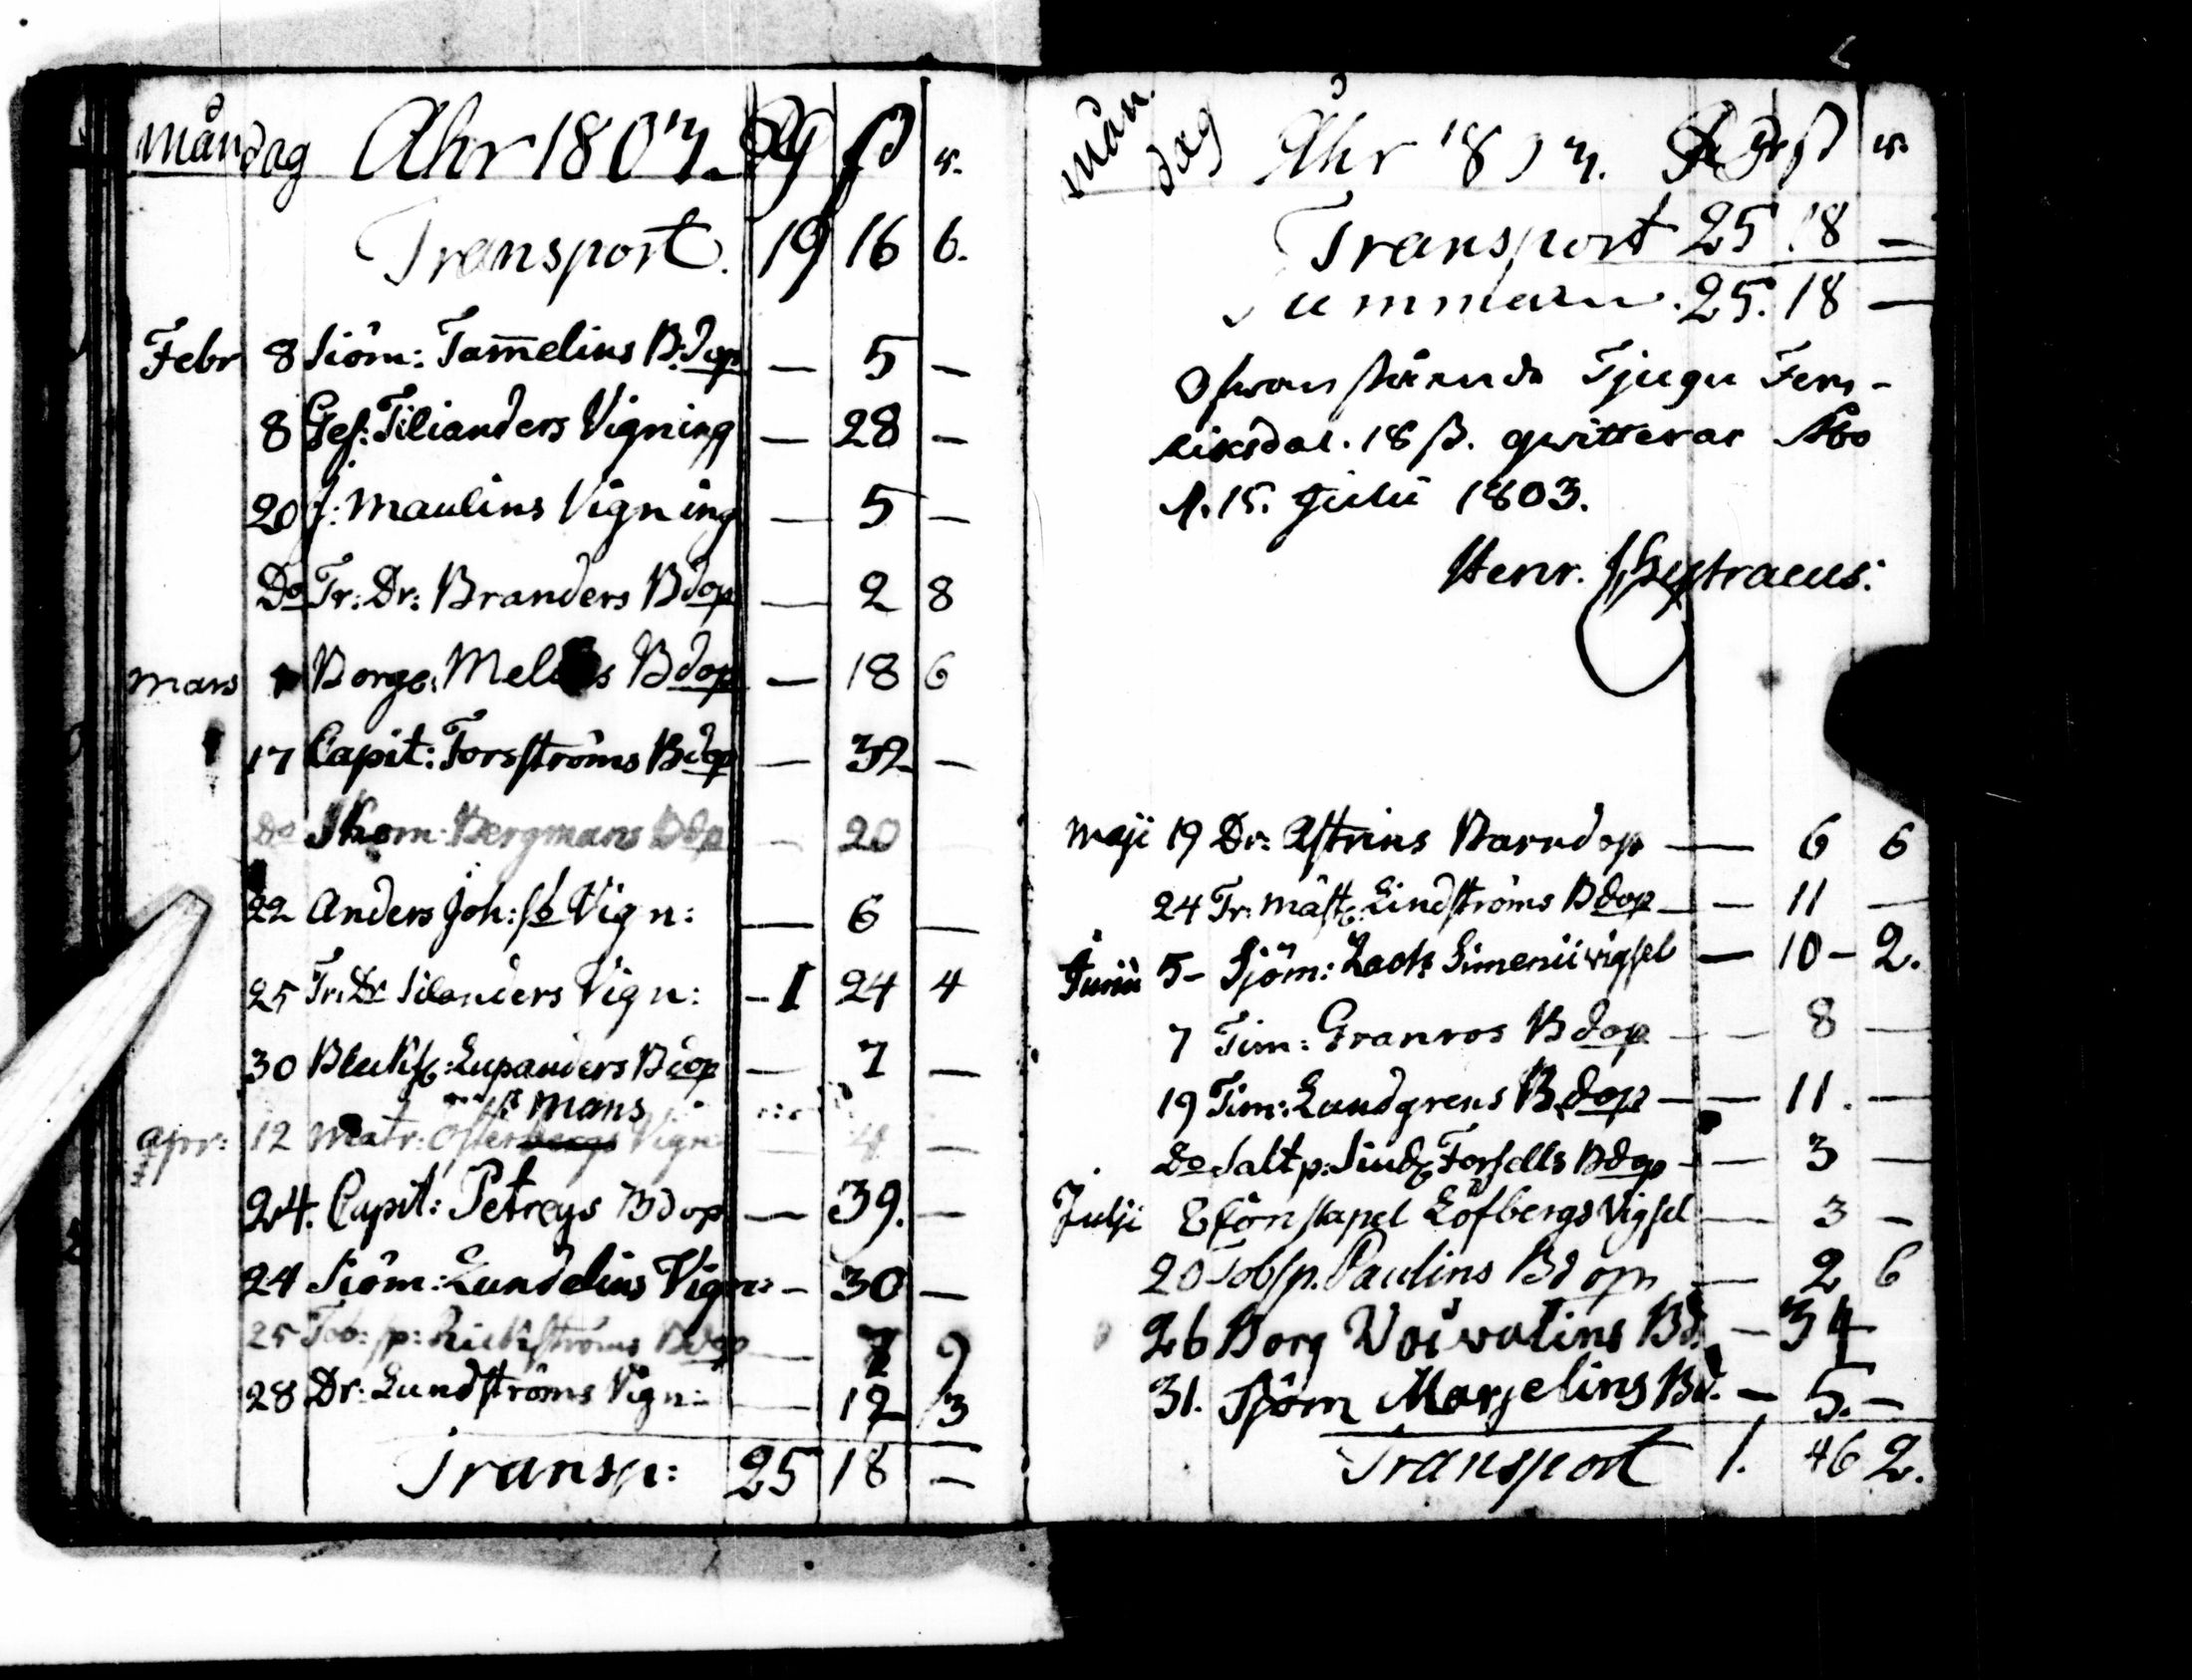 Mån dag Åhr 1803. Rd ß r.
Transport. 19 16 6.
Febr 8 Siöm: Tam̄elins B:dop — 5 —
8 Ges: Tilianders Vigning — 28 —
20 J: Maulins Vigning — 5 —
Do Tr: Dr: Branders Bdop — 2 8
Mars Borg: Bdop — 18 6
17 Capit: Forsströms Bdop — 32 —
Do Bergmans Bdp — 20
22 Anders Joh: Vign: — 6 —
25 Tr: Dr Silanders Vign: - 1 24 4
30 Lupanders Bdop — 7 —
mans
Apr: 12 Matr: Österbergs Vign — 4 —
24. Capit: Petreys Bdop — 39. —
24 Siöm: Lundelius Vign: - 30 —
25 Tob: sp: Bdop — 7 9
28 Dr: Lundströms Vign: — 12 3
Transp: 25 18 —
Mån. dag Åhr 1803. Rd ß r.
Transport 25 18 —
Summan. 25. 18 —
Ofwanstående Tjugu Fem-
Riksdal. 18 ß. qwitteras Åbo
d. 15. Julii 1803.
Henr. Lystraeus.
Maji 19 Dr: Astrins Barndop — 6 6
24 Tr: Mäst: Lindströms Bdop — — 11 —
Junii 5- Sjöm: Zach Simenii wigsel — 10 - 2.
7 Tim: Granros Bdop — - 8 —
19 Tim: Lundgrens B.dop — — 11. —
Do Saltp: Siud: Forsells Bdop - — 3 —
Julji Löfbergs Vigsel — 3 -
20 Tobsp. Paulins Bdop — 2 6
26 Borg Woivalins Bd. — 34
31. Sjöm Marjelins Bd. — 5. —
Transport 1. 46 2.